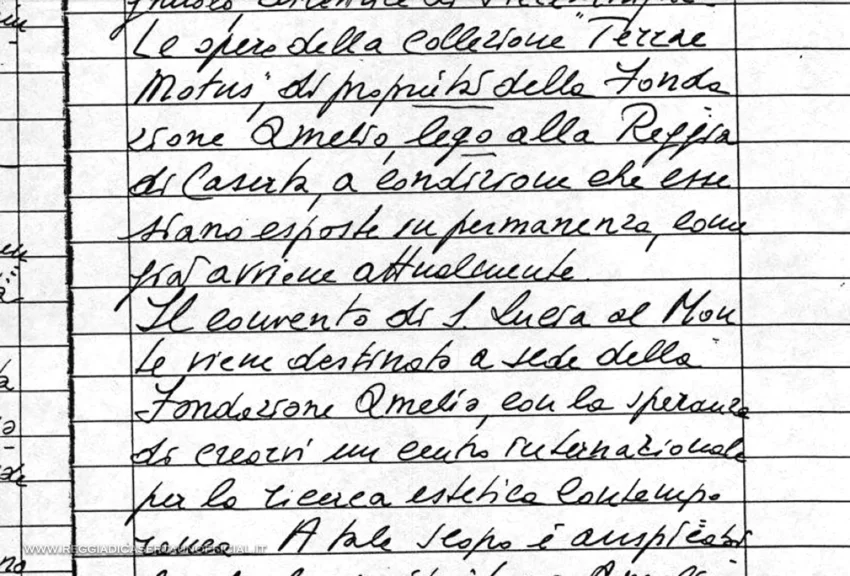 Le opere della Collezione "Terrae
Motus", di proprietà della Fonda
zione Amelio, lego alla Reggia
di Caserta, a condizione che esse
siano esposte in permanenza, come
già avviene attualmente.
Il convento di S. Lucia al Mon
te viene destinato a sede della
Fondazione Amelio, con la speranza
di crearvi un centro internazionale
per la ricerca estetica contempo
ranea. A tale scopo è auspicabi
WWW.REGGIADICASERTAUNOFFICIAL.IT